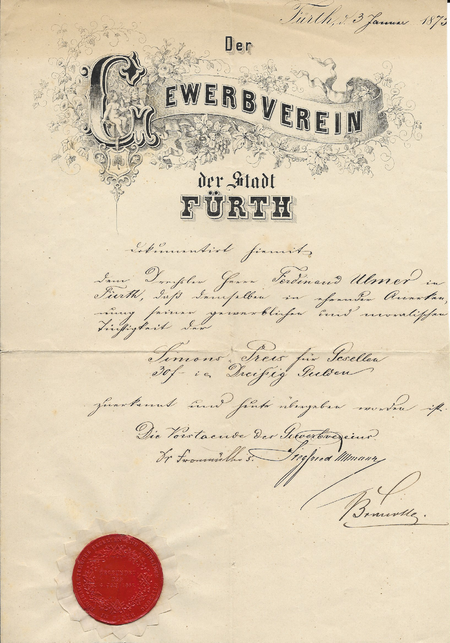 Fürth, d. 3 Januar 1873
Der
GEWERBVEREIN
der Stadt
FÜRTH
dokumentirt hiemit,
dem Drechsler Herrn Ferdinand Ulmer in
Fürth, daß demselben in ehrender Anerken-
nung seiner gewerblichen und moralischen
Tüchtigkeit der
Simons-Preis für Gesellen
30f Dreißig Gulden
zuerkannt und heute übergeben worden ist.
Die Vorstaende des Gewerbvereins
Dr Fronmüller